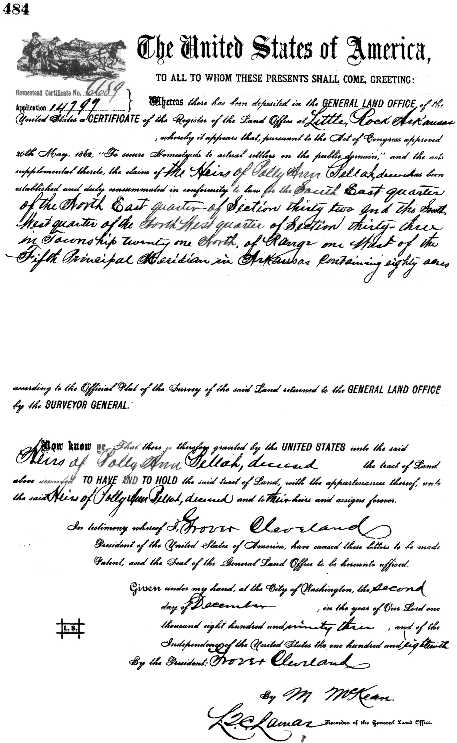 484
The United States of America,
TO ALL TO WHOM THESE PRESENTS SHALL COME, GREETING:
Homestead Certificate No.
Application 14797
Whereas there has been deposited in the GENERAL LAND OFFICE of the
United States a CERTIFICATE of the Register of the Land Office at Little Rock Arkansas
, whereby it appears that, pursuant to the Act of Congress approved
20th May, 1862, "To secure Homesteads to actual settlers on the public domain," and the acts
supplemental thereto, the claim of the Heirs of Polly Ann Pellah, deceased has been
established and duly consummated in conformity to law for the South East quarter
of the North East quarter of Section thirty two and the South
West quarter of the North West quarter of Section thirty-three
in Township twenty one North, of Range one West of the
Fifth Principal Meridian in Arkansas containing eighty acres
according to the Official Plat of the Survey of the said Land returned to the GENERAL LAND OFFICE
by the SURVEYOR GENERAL.
Now know ye, That there is therefore granted by the UNITED STATES unto the said
Heirs of Polly Ann Pellah, deceased the tract of Land
above described TO HAVE AND TO HOLD the said tract of Land, with the appurtenances thereof, unto
the said Heirs of Polly Ann Pellah, deceased and to their heirs and assigns forever.
In testimony whereof I, Grover Cleveland
President of the United States of America, have caused these letters to be made
Patent, and the Seal of the General Land Office to be hereunto affixed.
Given under my hand, at the City of Washington, the second
day of December , in the year of Our Lord one
thousand eight hundred and ninety three , and of the
Independence of the United States the one hundred and eighteenth
L.S.
By the President: Grover Cleveland
By M. McKean
L Q C Lamar Recorder of the General Land Office.